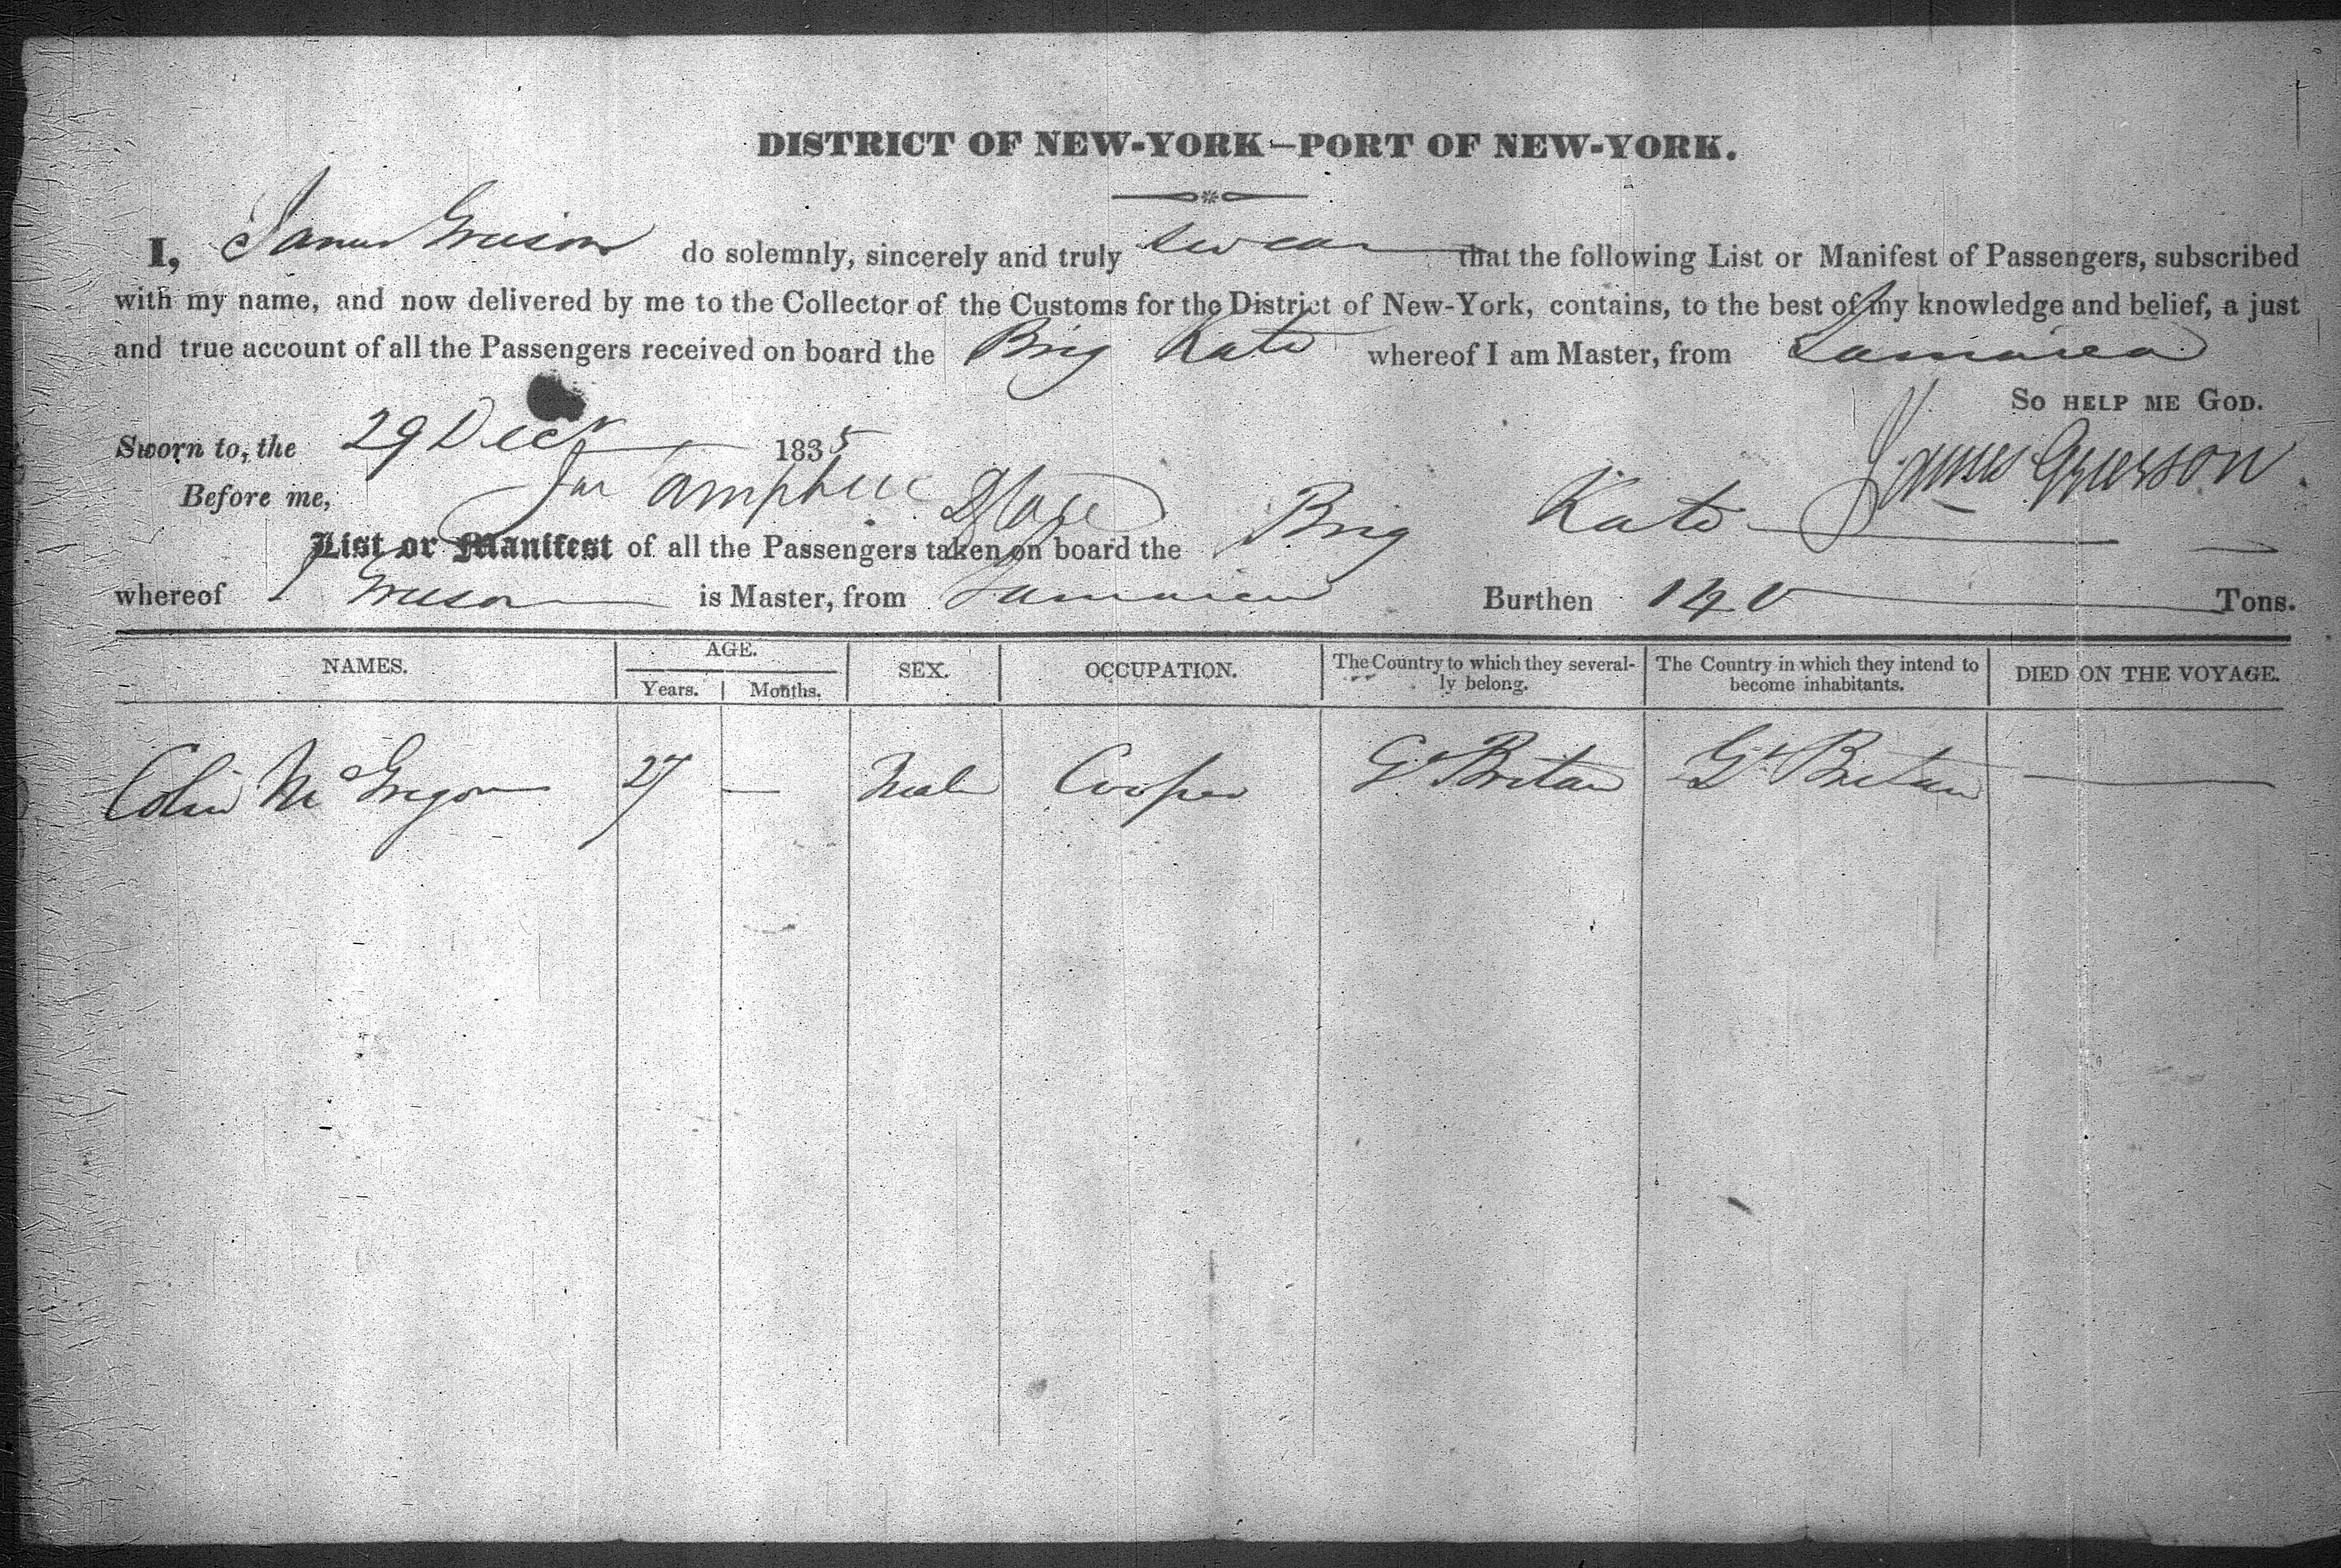 DISTRICT OF NEW-YORK—PORT OF NEW-YORK.
I, James Grierson do solemnly, sincerely and truly swear that the following List or Manifest of Passengers, subscribed
with my name, and now delivered by me to the Collector of the Customs for the District of New-York, contains, to the best of my knowledge and belief, a just
and true account of all the Passengers received on board the Brig Kate whereof I am Master, from Jamaica
SO HELP ME GOD.
Sworn to, the 29 Decr 1835
James Grierson
Before me,
List or Manifest of all the Passengers taken on board the Brig Kate
whereof J Grierson is Master, from Jamaica Burthen 140 Tons.
NAMES. AGE. Years. Months. SEX. OCCUPATION. The Country to which they severally belong. The Country in which they intend to become inhabitants. DIED ON THE VOYAGE.
Colin McGregor 27 — Male Cooper Gt Britain Gt Britain —